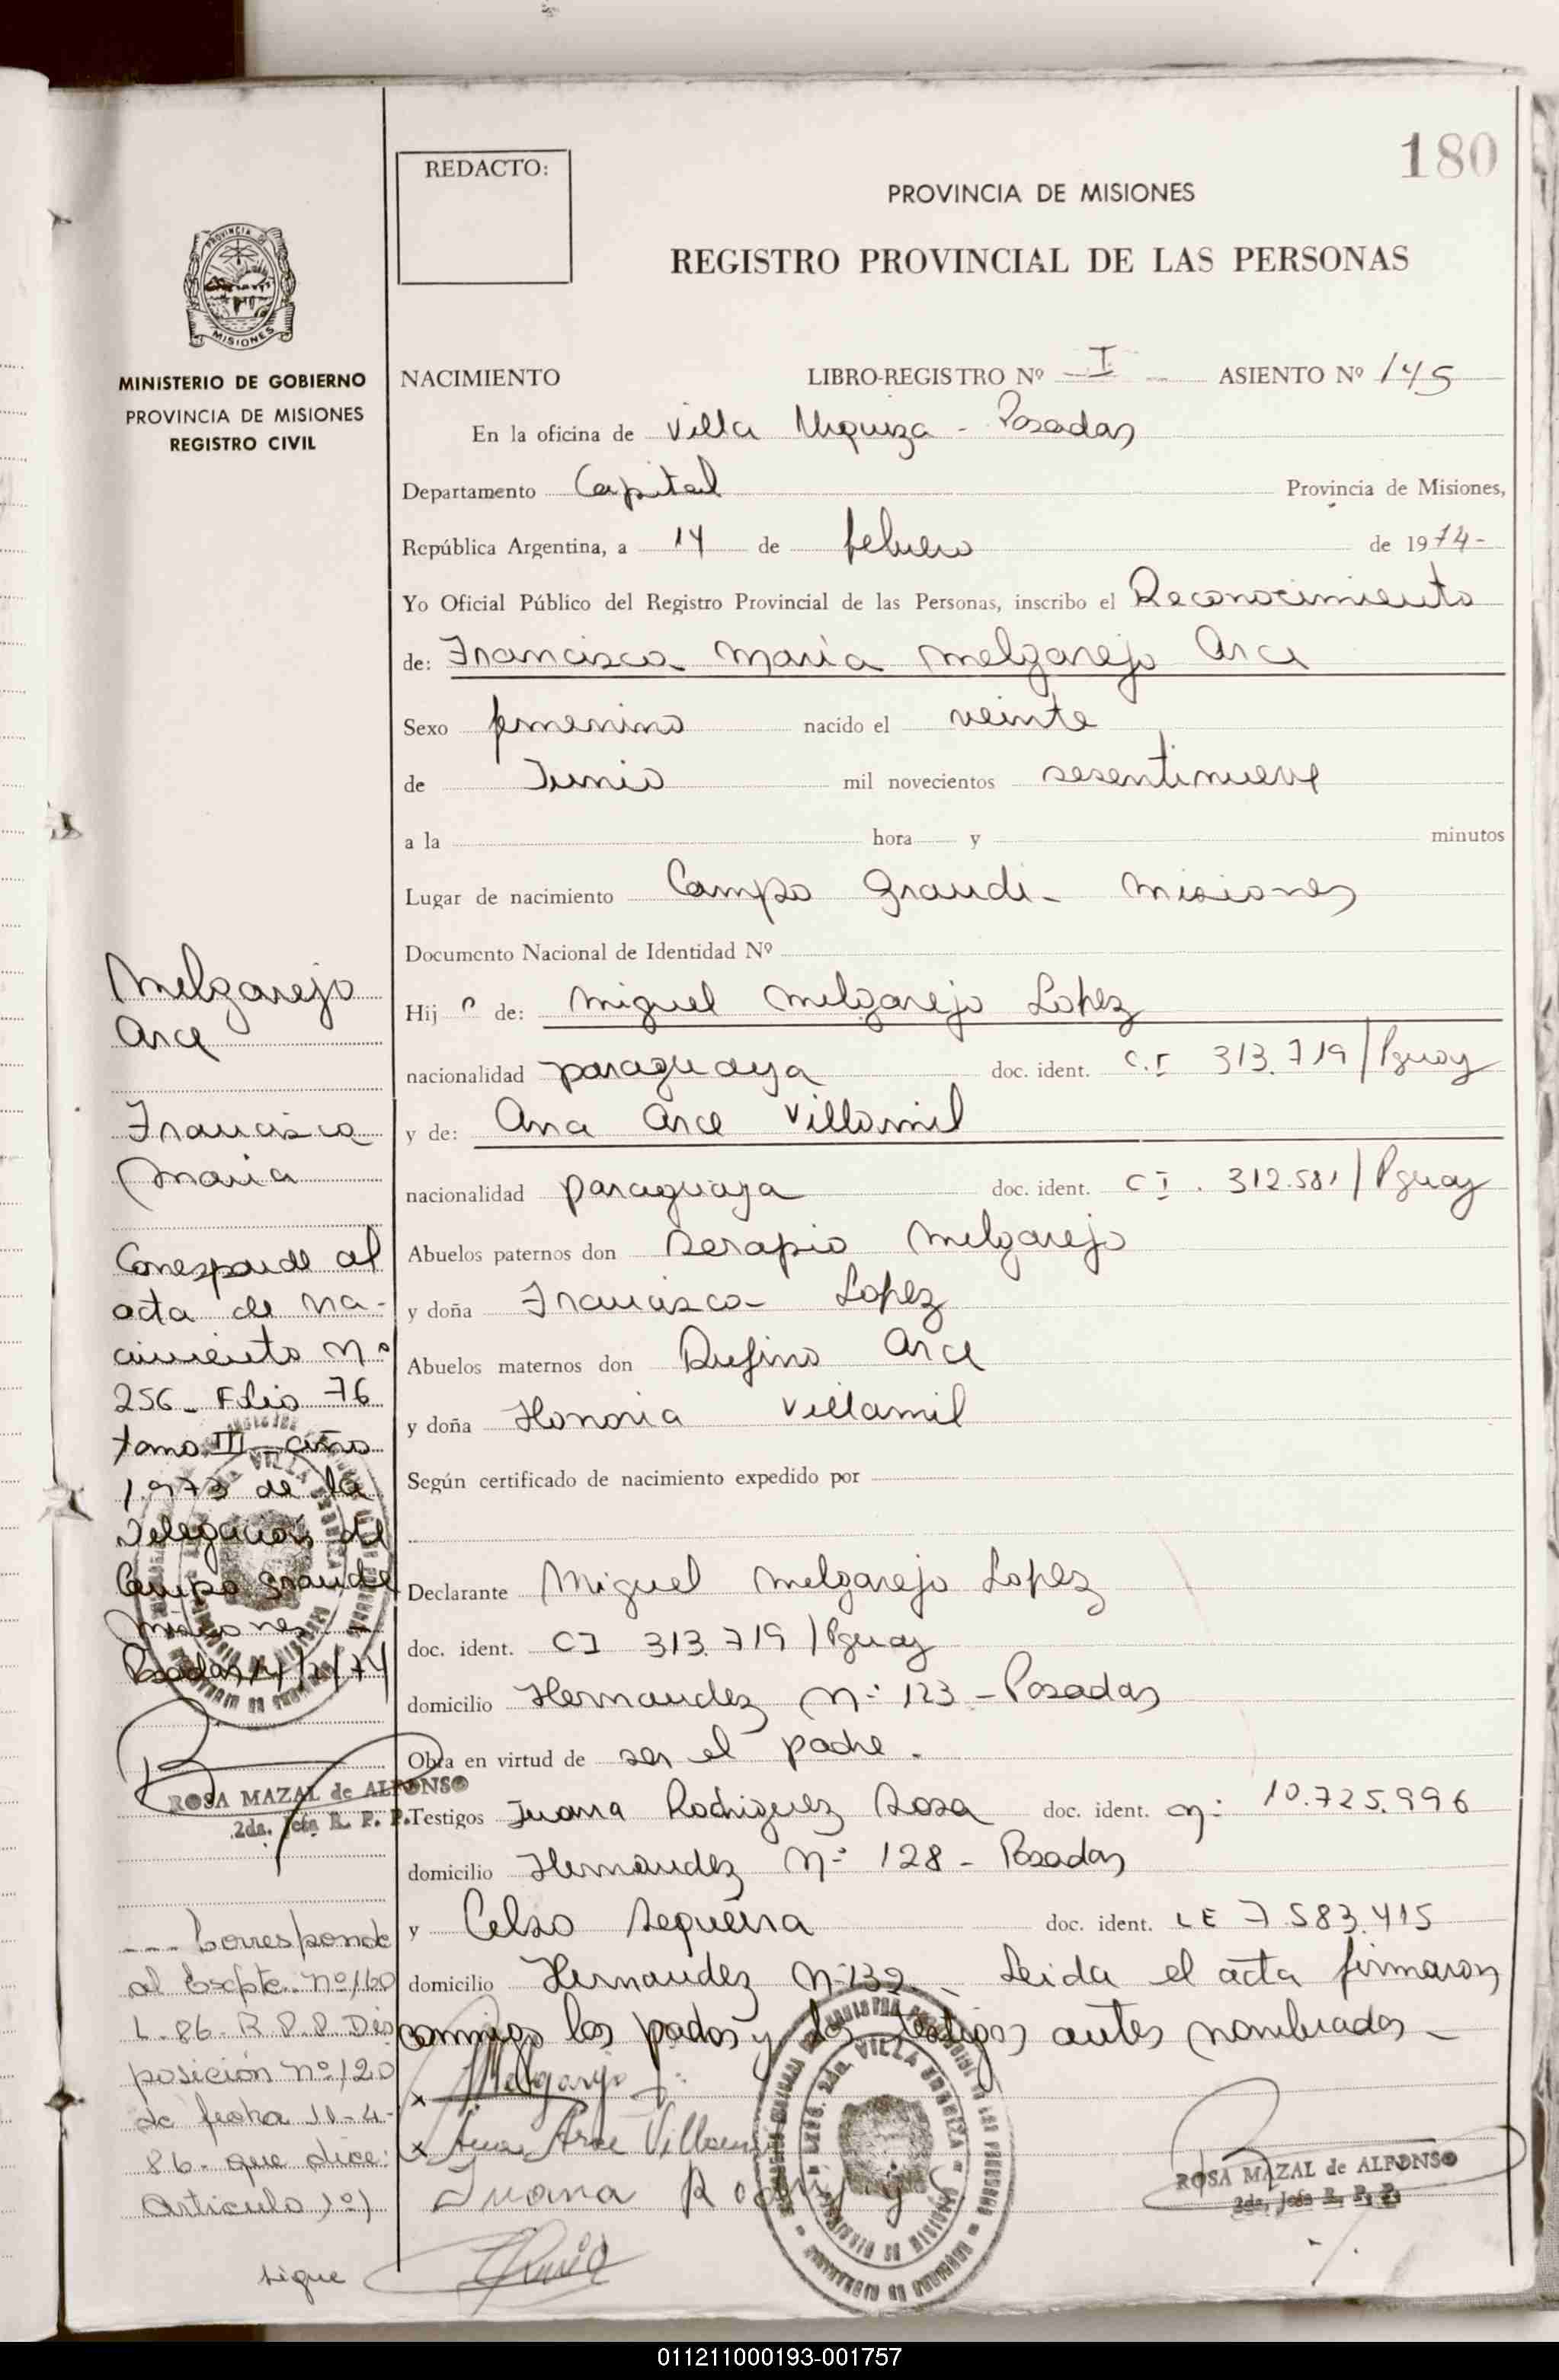 180
REDACTO:
PROVINCIA DE MISIONES
REGISTRO PROVINCIAL DE LAS PERSONAS
MISIONES
MINISTERIO DE GOBIERNO
PROVINCIA DE MISIONES
REGISTRO CIVIL
NACIMIENTO LIBRO-REGISTRO Nº I ASIENTO Nº 145
En la oficina de Villa Urquiza - Posadas
Departamento Capital Provincia de Misiones,
República Argentina, a 14 de febrero de 1974-
Yo Oficial Público del Registro Provincial de las Personas, inscribo el Reconocimiento
de: Francisca Maria Melgarejo Arce
Sexo femenino nacido el veinte
de Junio mil novecientos sesentinueve
a la hora y minutos
Lugar de nacimiento Campo Grande - Misiones
Documento Nacional de Identidad Nº
Hij a de: Miguel Melgarejo Lopez
nacionalidad paraguaya doc. ident. C.I 313.719/Pguay
y de: Ana Arce Villamil
nacionalidad paraguaya doc. ident. CI. 312.581/Pguay
Abuelos paternos don Serapio Melgarejo
y doña Francisca Lopez
Abuelos maternos don Rufino Arce
y doña Honoria Villamil
Según certificado de nacimiento expedido por
Declarante Miguel Melgarejo Lopez
doc. ident. CI 313.719/Pguay
domicilio Hernandez Nº 123 - Posadas
Obra en virtud de ser el padre.
Testigos Juana Rodriguez Sosa doc. ident. 10.725.996
domicilio Hernandez Nº 128 - Posadas
y Celso Sequeira doc. ident. LE 7.583.415
domicilio Hernandez Nº 132 - Leida el acta firmaron
conmigo los padres y los testigos antes nombrados -
x Melgarejo
x Ana Arce Villamil
Juana Rodriguez
ROSA MAZAL de ALFONSO
2da. Jefa R. P. P.
Melgarejo
Arce
Francisca
Maria
Corresponde al
acta de na-
cimiento Nº
256 - Folio 76
tomo III - año
1.973 de la
Delegación de
Campo Grande
Misiones -
Posadas 14/2/74
ROSA MAZAL de ALFONSO
2da. Jefa R. P. P.
--- Corresponde
al Expte. Nº 160
L-86- R.P.P. Dis
posición Nº 120
de fecha 11-4-
86- que dice:
Artículo 1º)
sigue
011211000193-001757